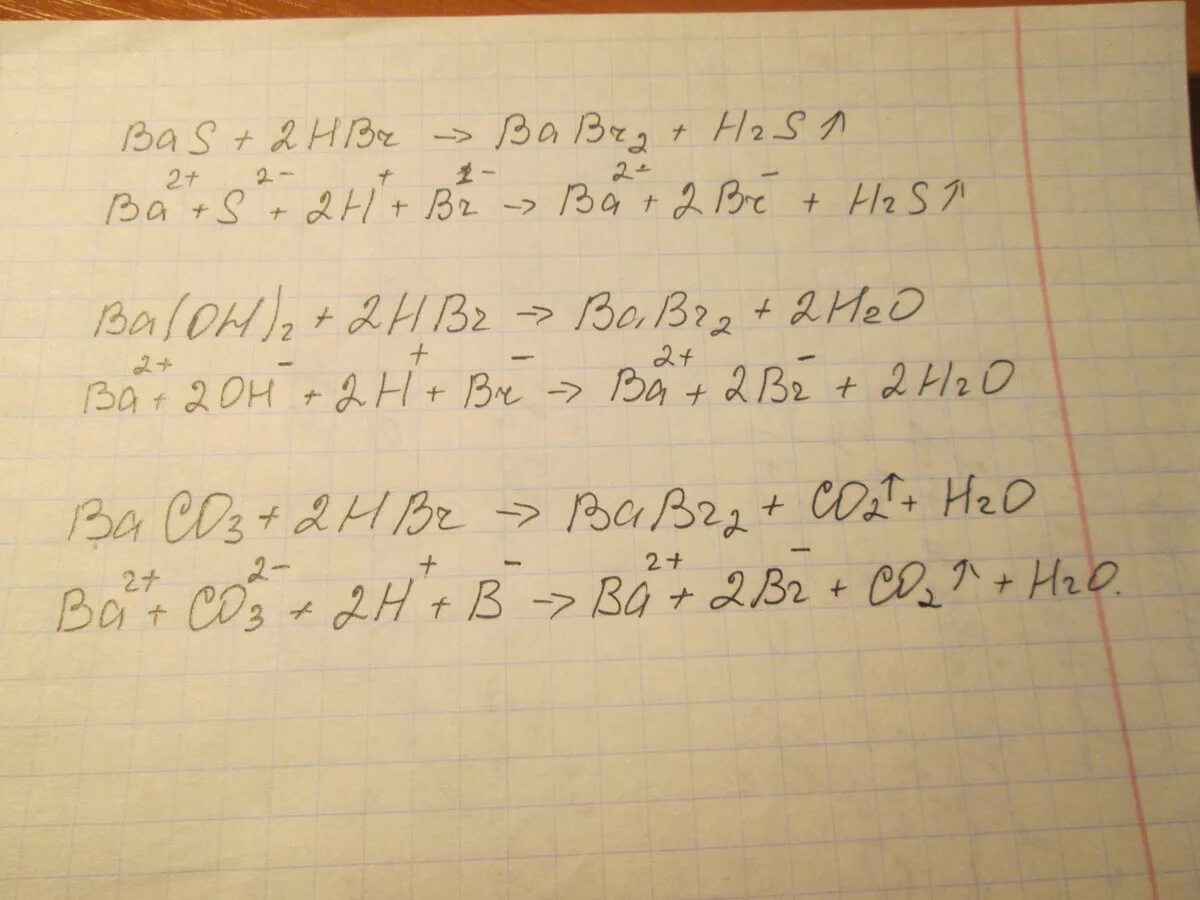 BaS + 2HBr → BaBr₂ + H₂S↑
Ba²⁺ + S²⁻ + 2H⁺ + Br⁻ → Ba²⁺ + 2Br⁻ + H₂S↑
Ba(OH)₂ + 2HBr → BaBr₂ + 2H₂O
Ba²⁺ + 2OH⁻ + 2H⁺ + Br⁻ → Ba²⁺ + 2Br⁻ + 2H₂O
BaCO₃ + 2HBr → BaBr₂ + CO₂↑ + H₂O
Ba²⁺ + CO₃²⁻ + 2H⁺ + B⁻ → Ba²⁺ + 2Br⁻ + CO₂↑ + H₂O.